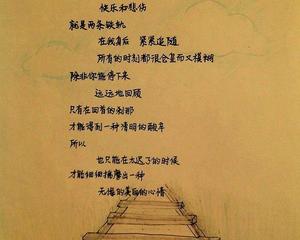 快乐和悲伤
就是两条铁轨
在我身后 紧紧追随
所有的时刻都很仓皇而又模糊
除非你能停下来
远远地回顾
只有在回首的刹那
才能得到一种清明的酸辛
所以
也只能在太迟了的时候
才能细细揣摩出一种
无悔的美丽的心情